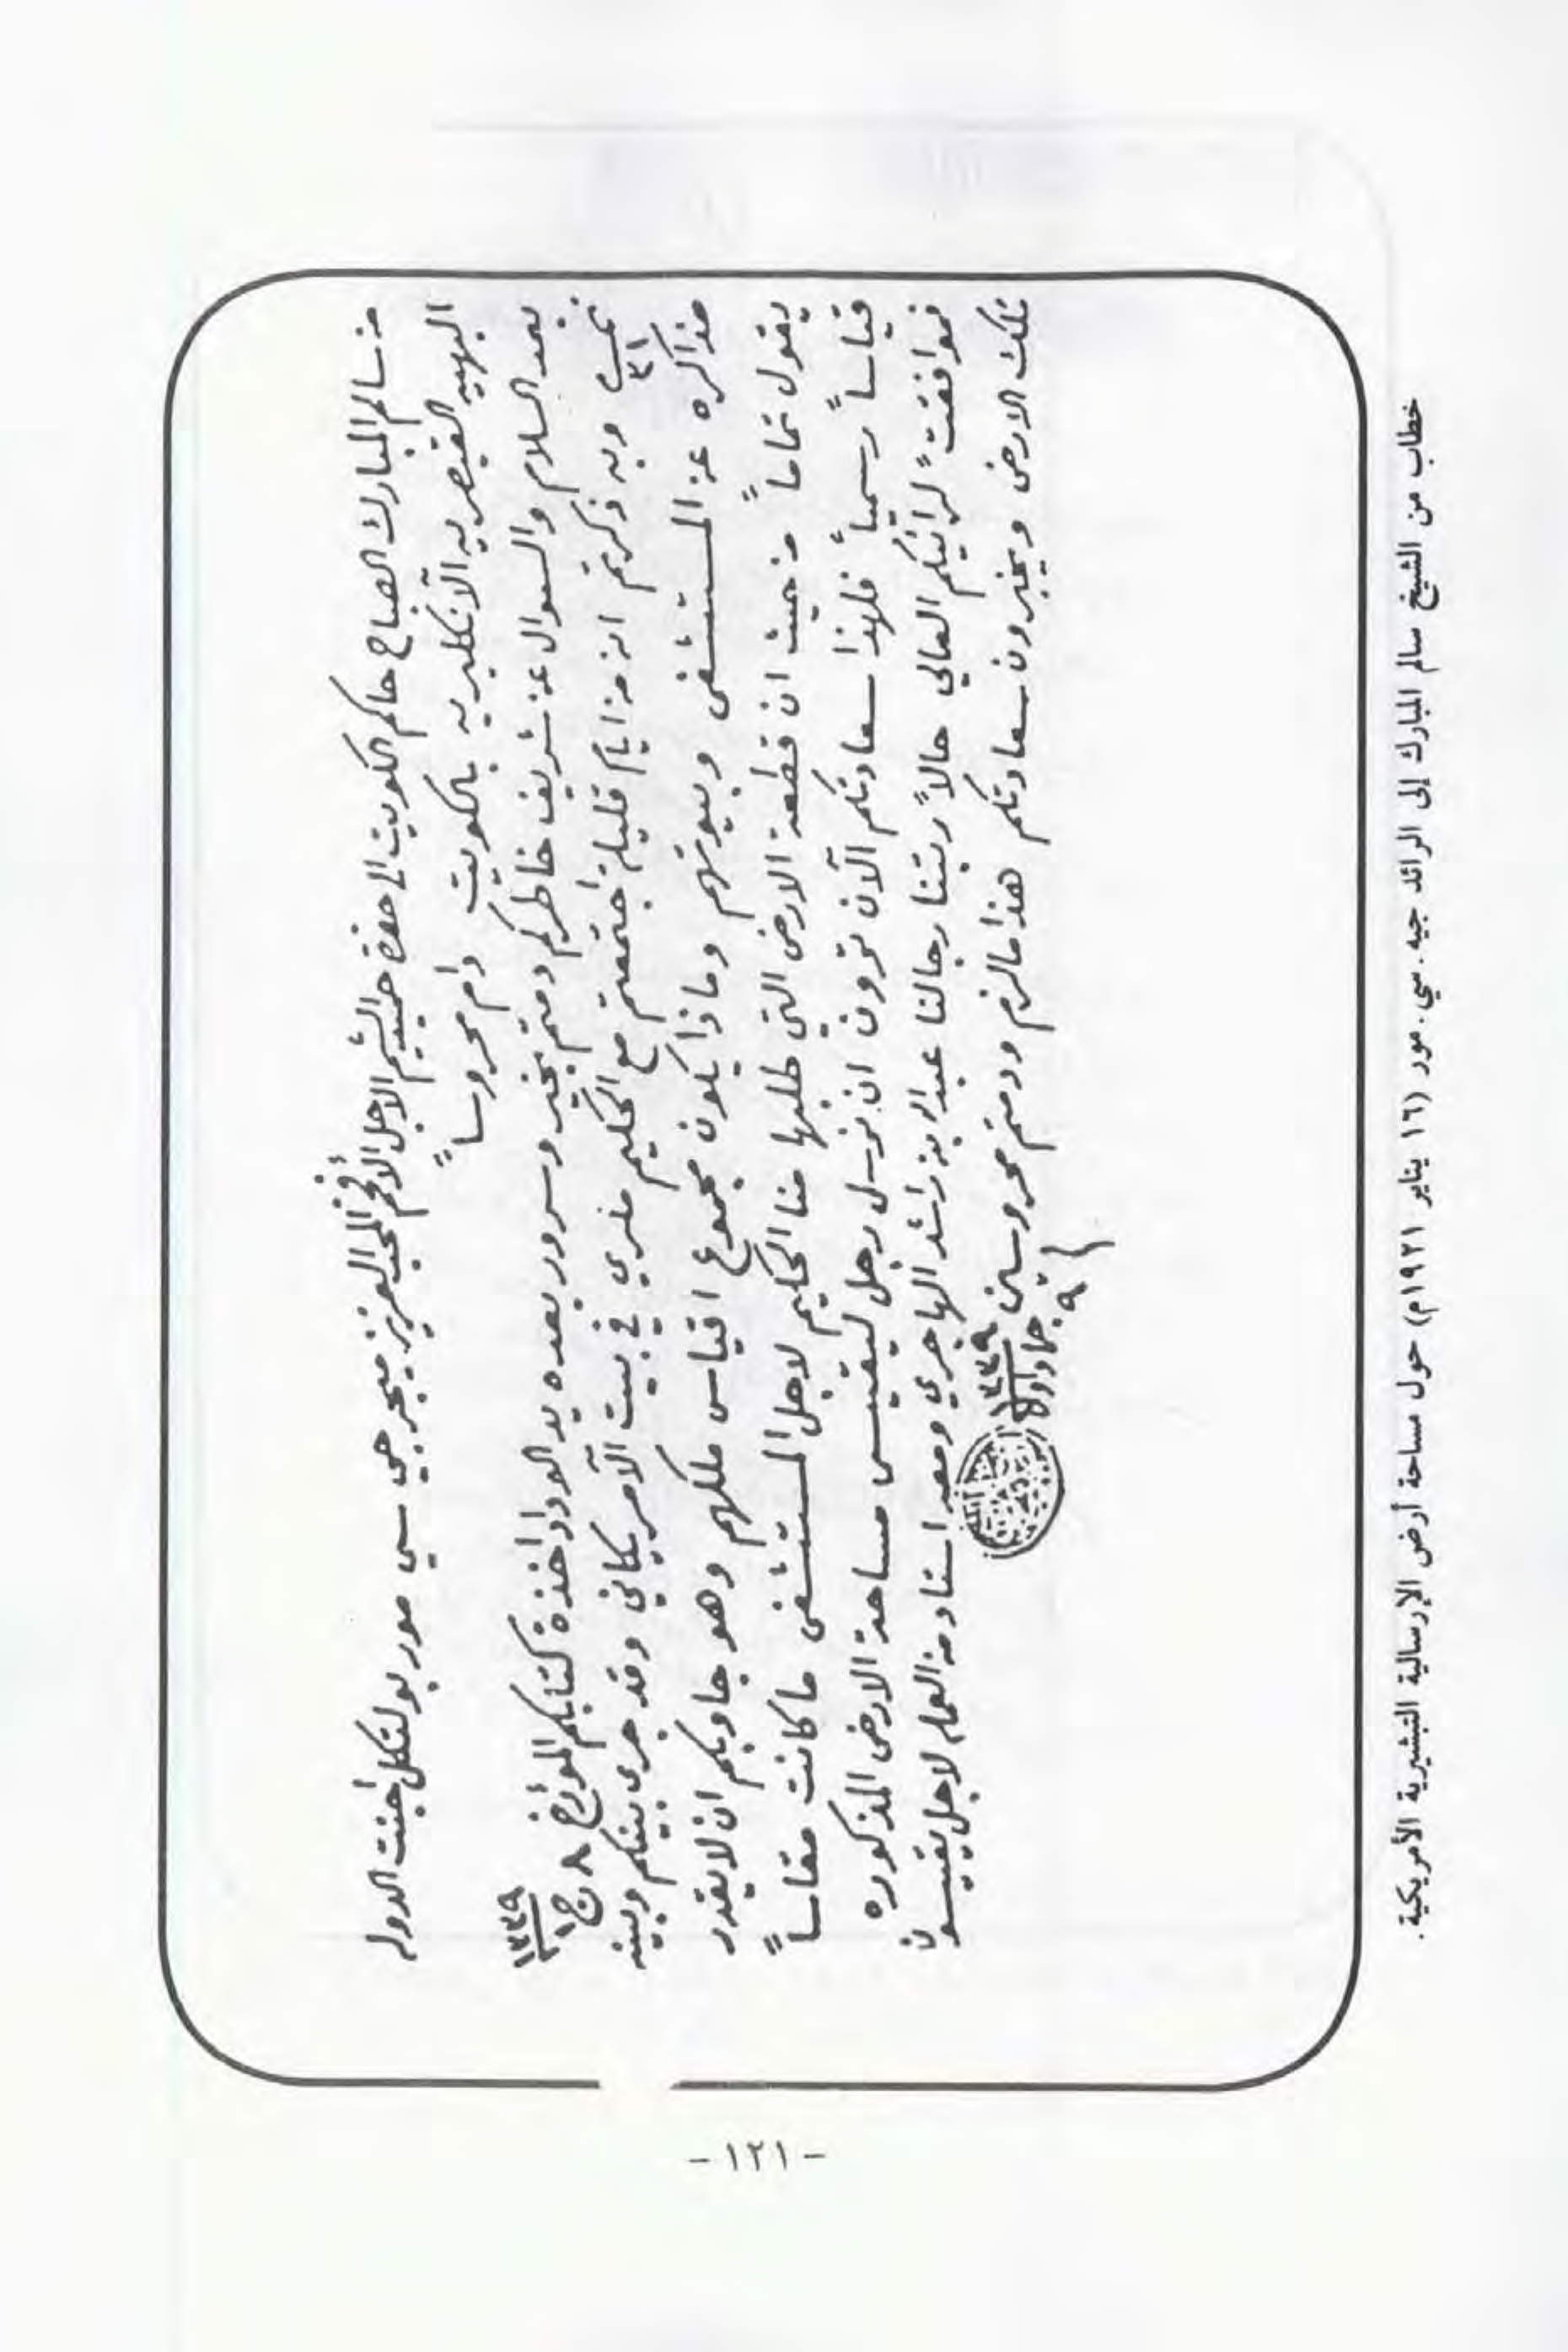 من سالم المبارك الصباح حاكم الكويت الى حضرة حميد الشيم الاجل الافخم المحب العزيز ميجر جي سي مور بولتكل اجنت الدوله
البهيه القيصريه الآنكليزيه بالكويت دام محروساً
بعد السلام والسوال عن شريف خاطركم دمتم بخير وسرور بعده بيد الوداد اخذة كتابكم المؤرخ ٨ ج١ ١٣٣٩
نمرة ٣١ وبه ذكرتم انه من ايام قليلة اجتمعتم مع الحكيم ملري في بيت الآمريكاني وقد جرى بينكم وبينه
مذاكره عن المستشفى وبيوتهم وماذا يكون مجموع اقياس ملكهم وهو جاوبكم ان لا يقدر
يقول تماماً من حيث ان قطعة الارض التي طلبها منا الحكيم لاجل المستشفى ما كانت مقاساً
قياساً رسمياً فلهذا سعادتكم الآن ترون ان نرسل رجل ليقيس مساحة الارض المذكوره
فموافقت لرائيكم العالي حالاً رتبنا رجالنا عبدالله بن راشد الهاجري ومعه استاد من العمله لاجل يقيسون
تلك الارض ويخبرون سعادتكم هذا ما لزم ودمتم محروسين
٩ جماد اول ١٣٣٩
خطاب من الشيخ سالم المبارك إلى الرائد جيه. سي. مور (١٦ يناير ١٩٢١م) حول مساحة أرض الإرسالية التبشيرية الأمريكية.
- ١٢١ -